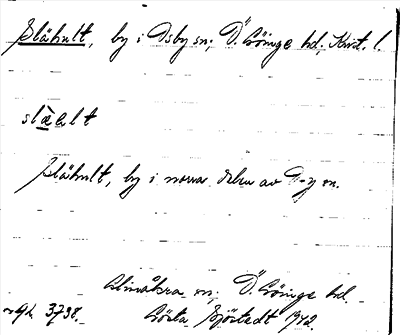 Slähult, by i Osby sn; Ö. Göinge hd; Krist. l.
slä̀ elt
Slähult, by i norra delen av O-y sn.
Almåkra sn; Ö. Göinge hd.
Gösta Sjöstedt 1942.
3738.